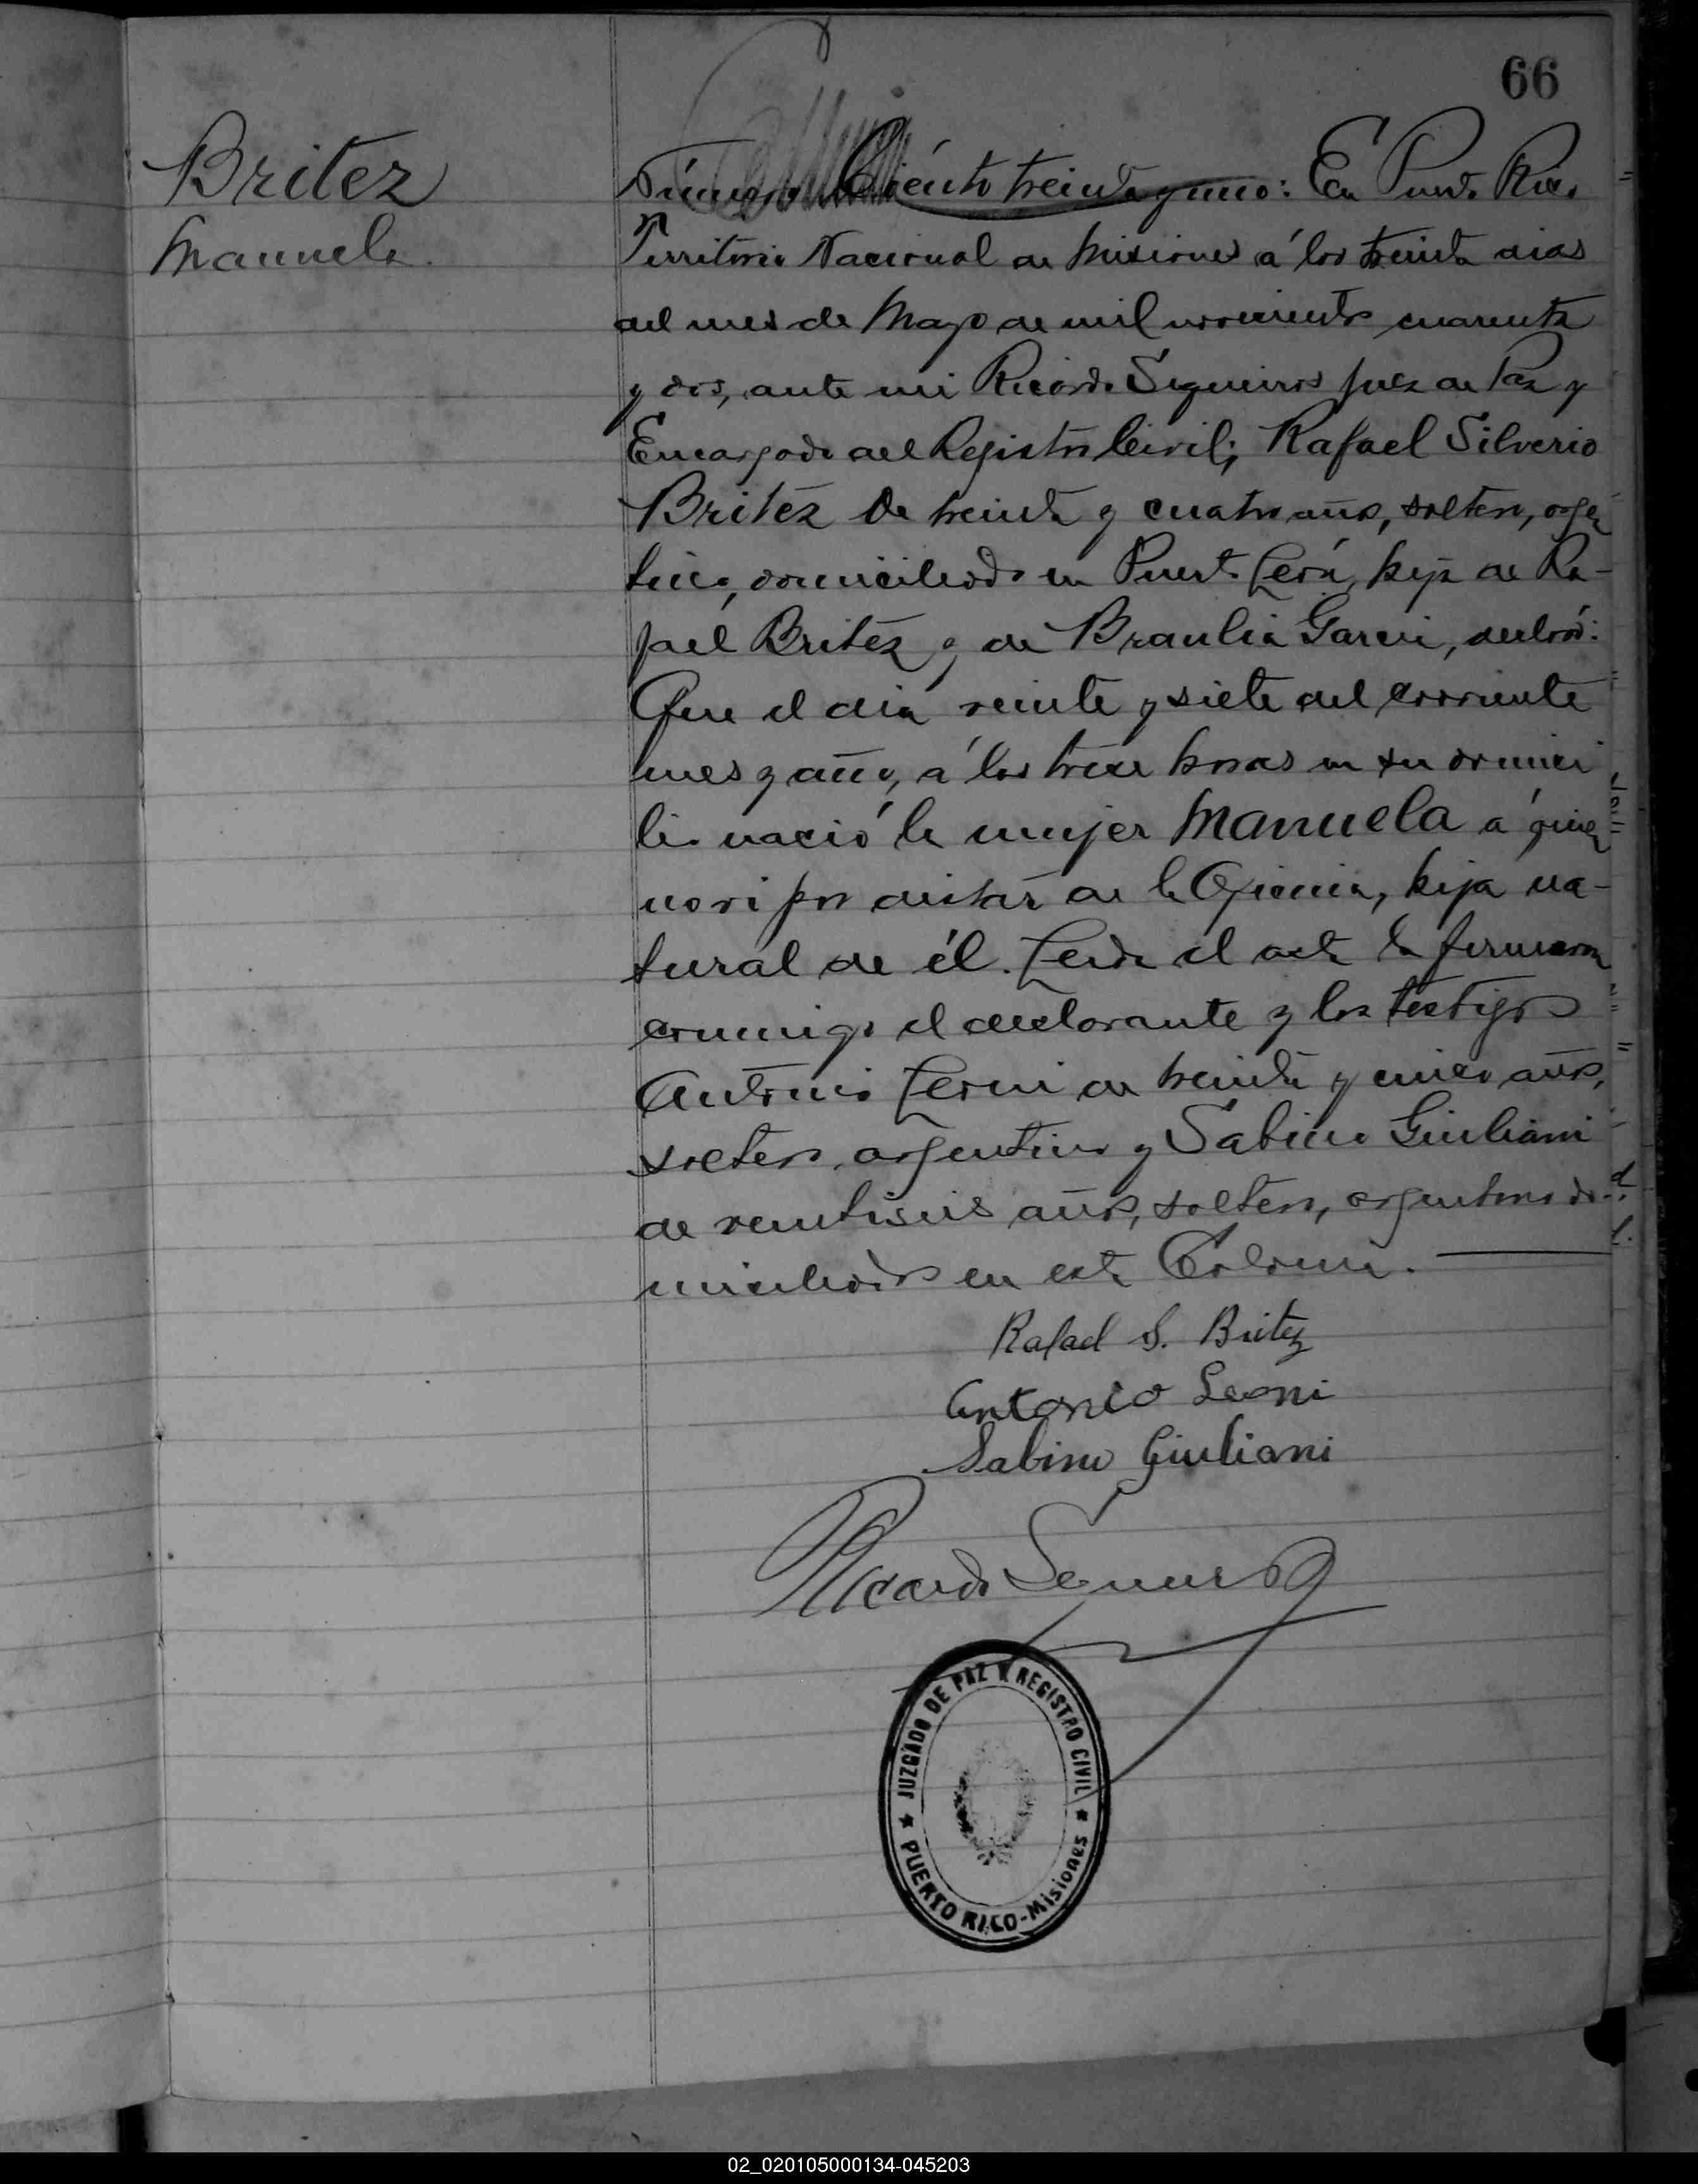 66
Britez
Manuela.
Número Ciento treinta y uno: En Puerto Rico
Territorio Nacional de Misiones á los treinta dias
del mes de Mayo de mil novecientos cuarenta
y dos, ante mi Ricardo Sequeiros Juez de Paz y
Encargado del Registro Civil; Rafael Silverio
Britez de treinta y cuatro años, soltero, argen
tino, domiciliado en Puerto hijo de Ra-
fael Britez y de Braulia declaró:
Que el dia veinte y siete del corriente
mes y año, á las trece horas en su domici
lio nació la mujer Manuela á quien
no vi por distar de la Oficina, hija na-
tural de él. Leida el acta la firmaron
conmigo el declarante y los testigos
Antonio Leoni de treinta y cinco años,
soltero argentino y Sabino Giuliani
de veintiseis años, soltero, argentino do-
miciliados en esta Colonia.
Rafael S. Britez
Antonio Leoni
Sabino Giuliani
Ricardo Sequeiros
JUZGADO DE PAZ Y REGISTRO CIVIL
PUERTO RICO-Misiones
02_020105000134-045203